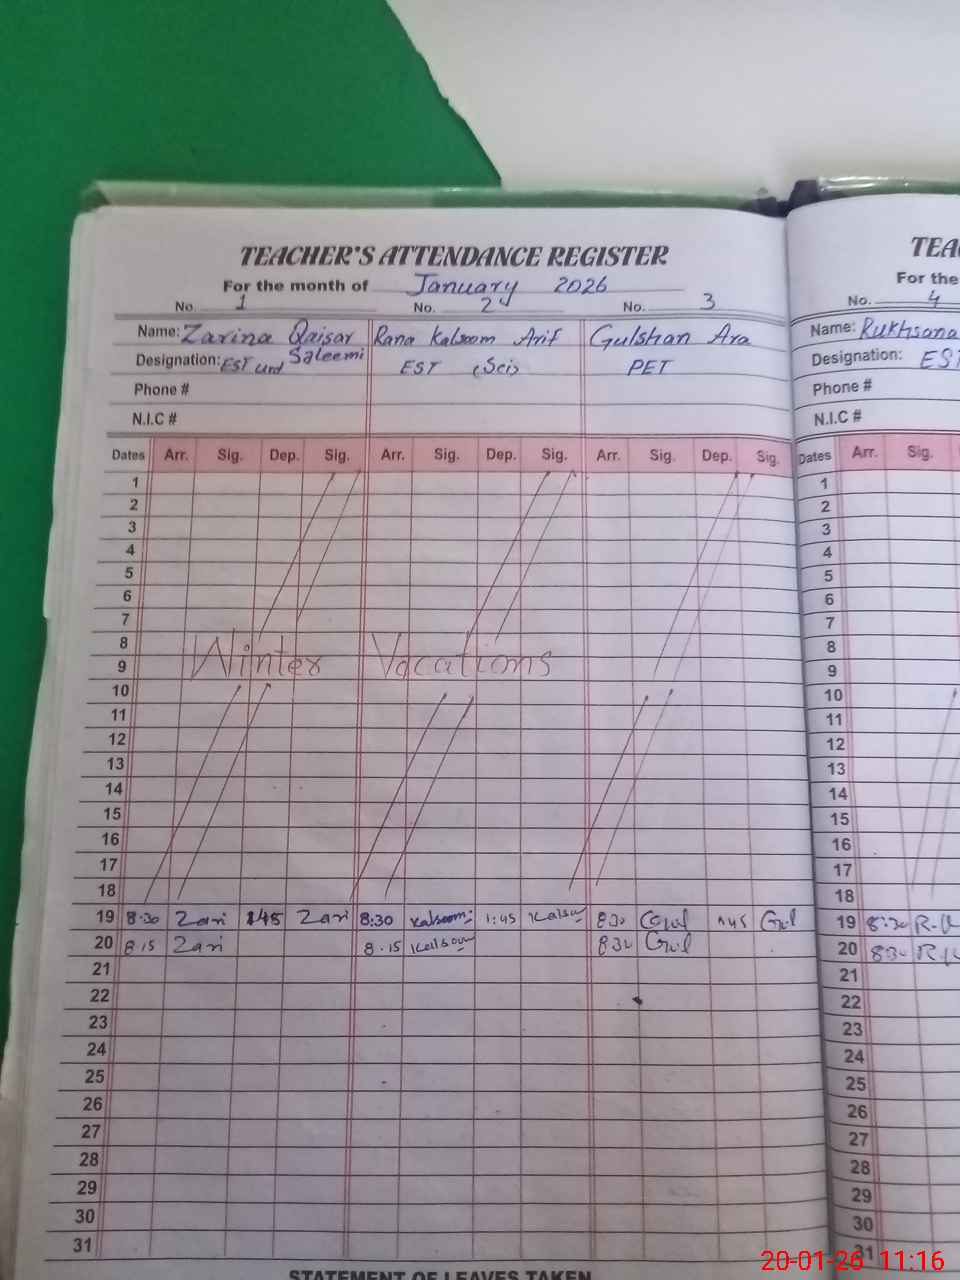 TEACHER'S ATTENDANCE REGISTER
For the month of January 2026
No. 1 No. 2 No. 3
Name: Zarina Qaisar Saleemi Rana Kalsoom Arif Gulshan Ara
Designation: EST urd EST (Sci) PET
Phone #
N.I.C #
Dates Arr. Sig. Dep. Sig. Arr. Sig. Dep. Sig. Arr. Sig. Dep. Sig.
1
2
3
4
5
6
7
8
Winter Vacations
9
10
11
12
13
14
15
16
17
18
19 8:30 Zari 1:45 Zari 8:30 Kalsoom 1:45 Kalsoom 8:30 Gul 1:45 Gul
20 8:15 Zari 8:15 Kalsoom 8:30 Gul
21
22
23
24
25
26
27
28
29
30
31
STATEMENT OF LEAVES TAKEN
TEA
For the
No. 4
Name: Rukhsana
Designation: EST
Phone #
N.I.C #
Dates Arr. Sig.
1
2
3
4
5
6
7
8
9
10
11
12
13
14
15
16
17
18
19 8:30
20 8:30
21
22
23
24
25
26
27
28
29
30
31
20-01-26 11:16